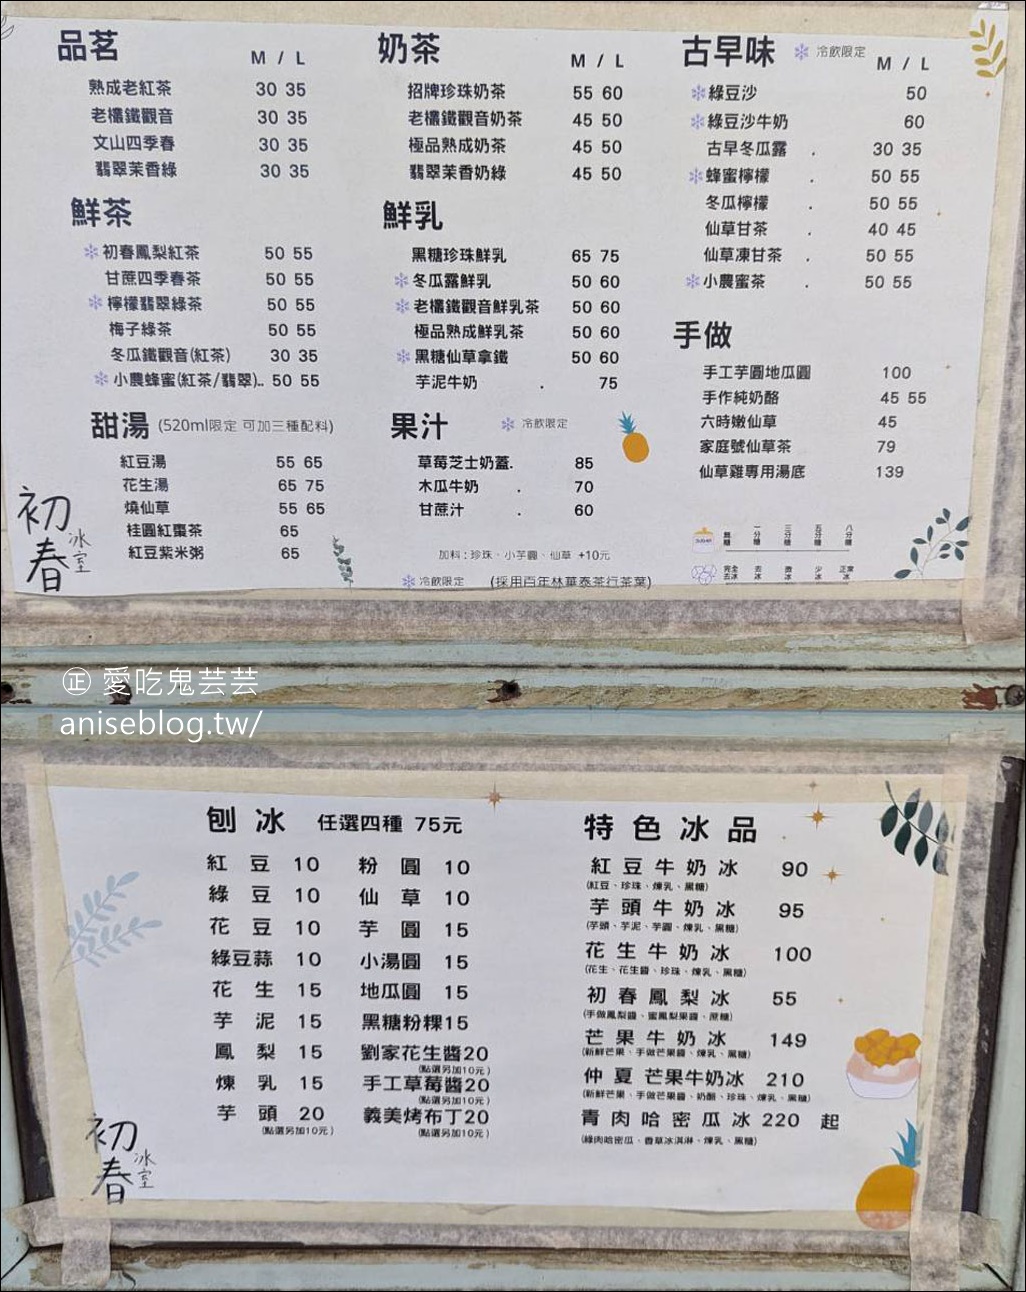 品茗 M / L
熟成老紅茶 30 35
老欉鐵觀音 30 35
文山四季春 30 35
翡翠茉香綠 30 35
鮮茶
初春鳳梨紅茶 50 55
甘蔗四季春茶 50 55
檸檬翡翠綠茶 50 55
梅子綠茶 50 55
冬瓜鐵觀音(紅茶) 30 35
小農蜂蜜(紅茶/翡翠).. 50 55
甜湯 (520ml限定 可加三種配料)
紅豆湯 55 65
花生湯 65 75
燒仙草 55 65
桂圓紅棗茶 65
紅豆紫米粥 65
初春冰室
奶茶 M / L
招牌珍珠奶茶 55 60
老欉鐵觀音奶茶 45 50
極品熟成奶茶 45 50
翡翠茉香奶綠 45 50
鮮乳
黑糖珍珠鮮乳 65 75
冬瓜露鮮乳 50 60
老欉鐵觀音鮮乳茶 50 60
極品熟成鮮乳茶 50 60
黑糖仙草拿鐵 50 60
芋泥牛奶 . 75
果汁 冷飲限定
草莓芝士奶蓋. 85
木瓜牛奶 . 70
甘蔗汁 . 60
加料:珍珠、小芋圓、仙草 +10元
冷飲限定 (採用百年林華泰茶行茶葉)
古早味 冷飲限定 M / L
綠豆沙 50
綠豆沙牛奶 60
古早冬瓜露 . 30 35
蜂蜜檸檬 . 50 55
冬瓜檸檬 . 50 55
仙草甘茶 . 40 45
仙草凍甘茶 . 50 55
小農蜜茶 . 50 55
手做
手工芋圓地瓜圓 100
手作純奶酪 45 55
六時嫩仙草 45
家庭號仙草茶 79
仙草雞專用湯底 139
無糖 一分糖 三分糖 五分糖 八分糖
完全去冰 去冰 微冰 少冰 正常冰
㊣ 愛吃鬼芸芸
aniseblog.tw/
刨冰 任選四種 75元
紅豆 10 粉圓 10
綠豆 10 仙草 10
花豆 10 芋圓 15
綠豆蒜 10 小湯圓 15
花生 15 地瓜圓 15
芋泥 15 黑糖粉粿15
鳳梨 15 劉家花生醬20
(點選另加10元)
煉乳 15 手工草莓醬20
(點選另加10元)
芋頭 20 義美烤布丁20
(點選另加10元) (點選另加10元)
初春冰室
特色冰品
紅豆牛奶冰 90
(紅豆、珍珠、煉乳、黑糖)
芋頭牛奶冰 95
(芋頭、芋泥、芋圓、煉乳、黑糖)
花生牛奶冰 100
(花生、花生醬、珍珠、煉乳、黑糖)
初春鳳梨冰 55
(手做鳳梨醬、蜜鳳梨果醬、蔗糖)
芒果牛奶冰 149
(新鮮芒果、手做芒果醬、煉乳、黑糖)
仲夏芒果牛奶冰 210
(新鮮芒果、手做芒果醬、奶酪、珍珠、煉乳、黑糖)
青肉哈密瓜冰 220 起
(綠肉哈密瓜、香草冰淇淋、煉乳、黑糖)